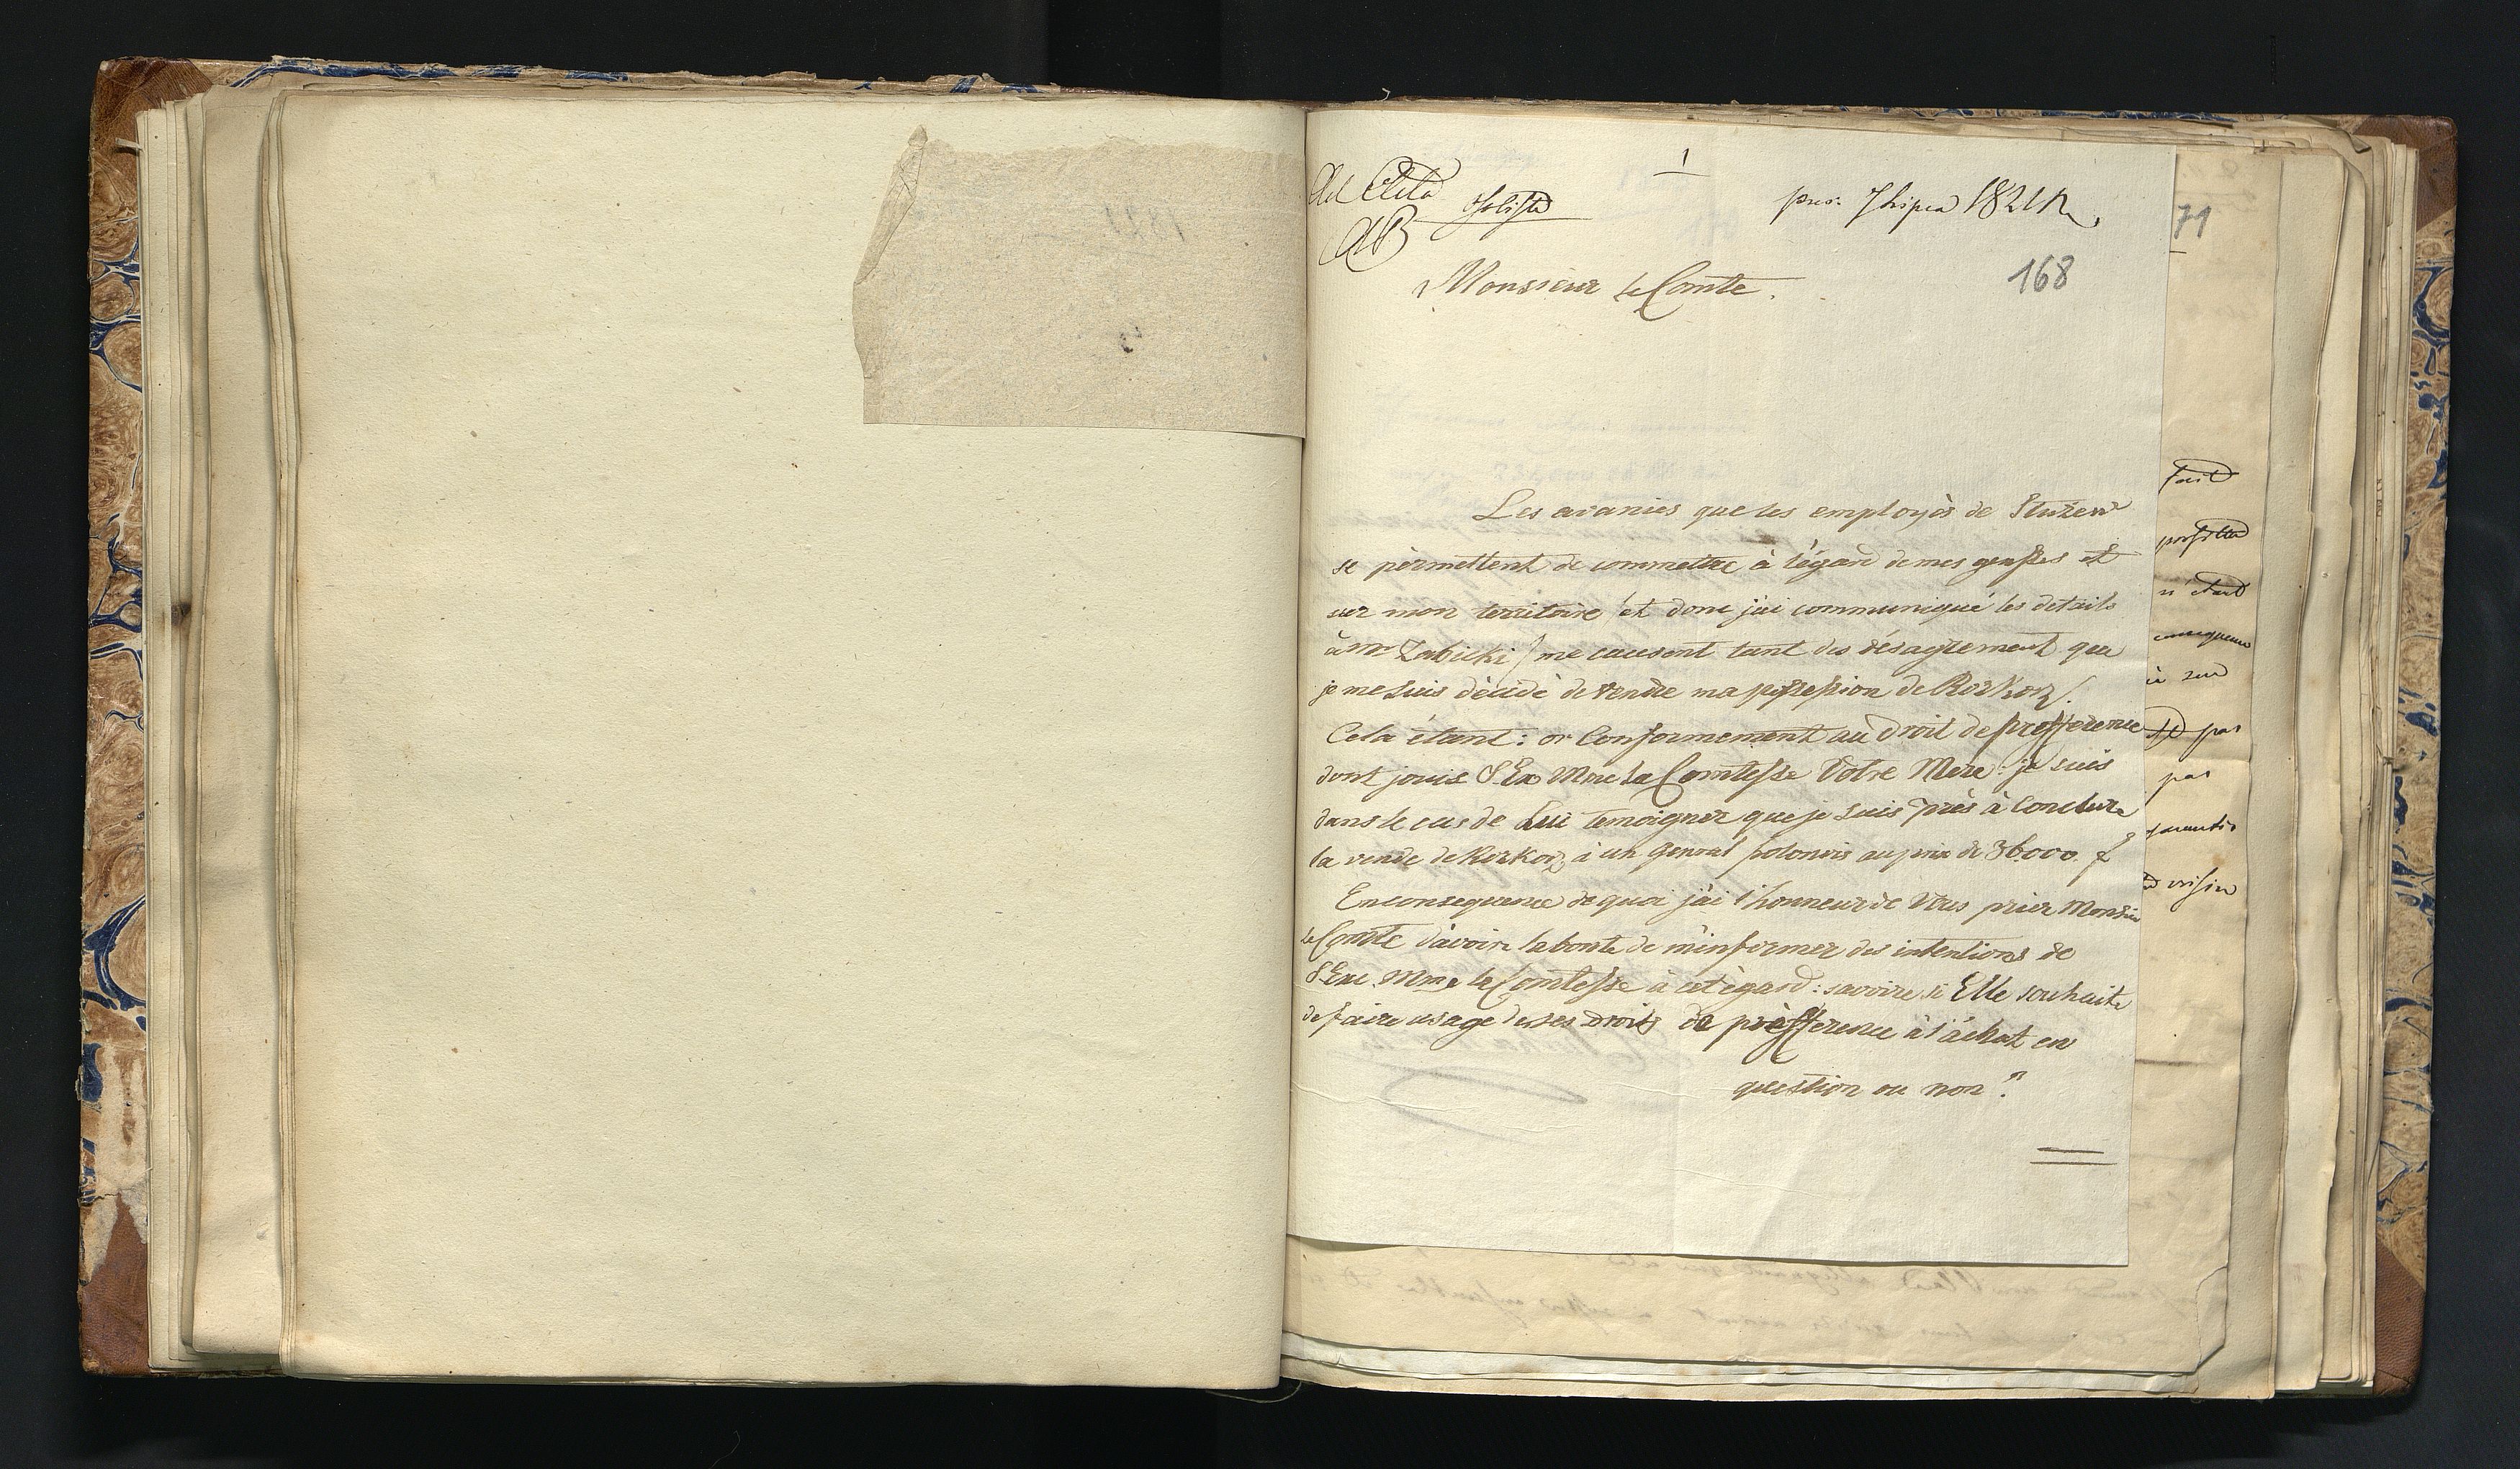 1
Ad Acta
pres. 7 Lipca 1821 R.
168
Monsieur le Comte.
Les avanies que les employès de Stużew
se pèrmettent de commettre à l'ègard de mes gensses et
sur mon territoire /et donc j'ai communiqué les details
à Mr Zabicki/ me causent tant des désagrement que
je me suis dècidè de vendre ma possession de Rozkosz/.
Cela étant: or Conformement au Droit de prefference
dont jouis S. Ex Mme la Comtesse Votre Mere: je suis
dans le cas de Lui temoigner que je suis près à Conclure
la vende de Rozkosz à un General polonois au prix de 36000 f
En consequence de quoi j'ai l'honneur de Vous prier Monsieur
le Comte d'avoir la bonte de m'informer des intentions de
S. Exc. Mme la Comtesse à cet ègard: savoire si Elle souhaite
de faire usage de ses Droits de prèfference à l'achat en
question ou non?
71
fait
n'étant
sur
par
pas
garantir
voisin